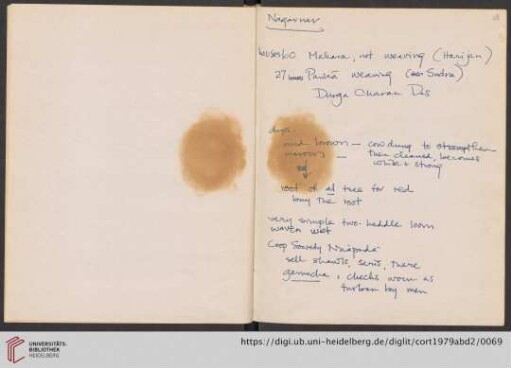 Nagarnar
houses 60 Mahara, not weaving (Harijan)
27 Panka weaving (Sudra)
Durga Charan Das
dyes
red brown — cow dung to strengthen
maroon — then cleaned, becomes
white & strong
root of al tree for red
buy the root
very simple two-heddle loom
woven wet
Coop Society
sell shawls, saris, there
gamucha, checks worn as
turban by men
UNIVERSITÄTS-
BIBLIOTHEK
HEIDELBERG
https://digi.ub.uni-heidelberg.de/diglit/cort1979abd2/0069